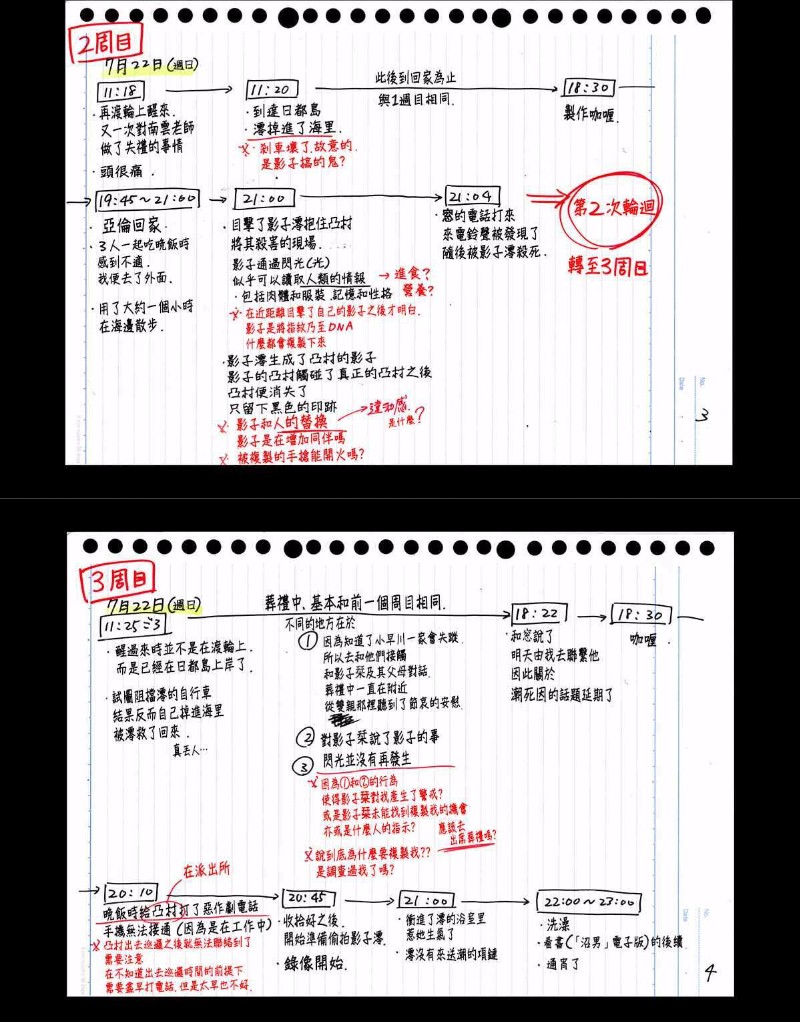 2周目
7月22日(週日)
11:18
・再渡輪上醒來.
又一次對南雲老師
做了失禮的事情
・頭很痛.
11:20
・到達日都島
・澪掉進了海里.
※・剎車壞了.故意的.
是影子搞的鬼?
此後到回家為止
與1週目相同.
18:30
製作咖喱.
19:45~21:00
・亞倫回家.
・3人一起吃晚飯時
感到不適.
我便去了外面.
・用了大約一個小時
在海邊散步.
21:00
・目擊了影子澪把住凸村
將其殺害的現場....
影子通過閃光(光)
似乎可以讀取人類的情報
→進食?
營養?
・包括肉體和服裝.記憶和性格
※・在近距離目擊了自己的影子之後才明白.
影子是將指紋乃至DNA
什麼都會複製下來
・影子澪生成了凸村的影子
影子的凸村觸碰了真正的凸村之後
凸村便消失了
只留下黑色的印跡
※ 影子和人的替換
→違和感.
是什麼?
影子是在增加同伴嗎
※ 被複製的手搶能開火嗎?
21:04
・窓的電話打來
來電鈴聲被發現了
隨後被影子澪殺死.
第2次輪迴
轉至3周目
No.
Date
3
3周目
7月22日(週日)
11:25ごろ
・醒過來時並不是在渡輪上.
而是已經在日都島上岸了.
・試圖阻擋澪的自行車
結果反而自己掉進海里
被澪救了回來.
真丟人…
葬禮中、基本和前一個周目相同.
不同的地方在於
① 因為知道了小早川一家會失蹤.
所以去和他們接觸
和影子栞及其父母對話.
葬禮中一直在附近
從雙親那裡聽到了節哀的安慰
② 對影子栞說了影子的事
③ 閃光並沒有再發生
※因為①和②的行為
使得影子栞對我產生了警戒?
或是影子栞未能找到複製我的機會
亦或是什麼人的指示?
應該去
出席葬禮嗎?
※說到底為什麼要複製我??
是調查過我了嗎?
18:22
・和窓說了
明天由我去聯繫他
因此關於
潮死因的話題延期了
18:30
咖喱.
在派出所
20:10
晚飯時給凸村打了惡作劇電話
手機無法接通(因為是在工作中)
※凸村出去巡邏之後就無法聯絡到了
需要注意
在不知道出去巡邏時間的前提下
需要盡早打電話.但是太早也不好.
20:45
・收拾好之後.
開始準備偷拍影子澪.
・錄像開始.
21:00
・衝進了澪的浴室里
惹她生氣了
・澪沒有來送潮的項鏈
22:00~23:00
・洗澡
・看書(「沼男」電子版)的後續
・通宵了
No.
Date
4